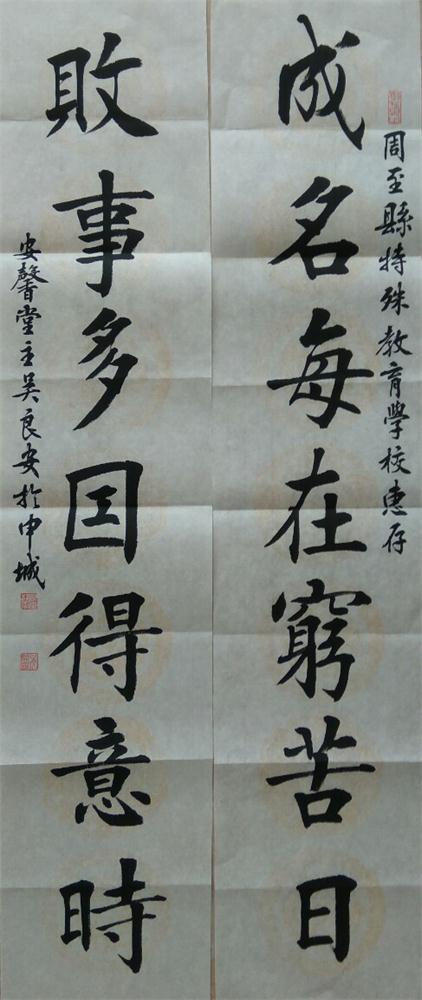 周至縣特殊教育學校惠存
成名每在窮苦日
敗事多因得意時
安馨堂主吴良安於申城